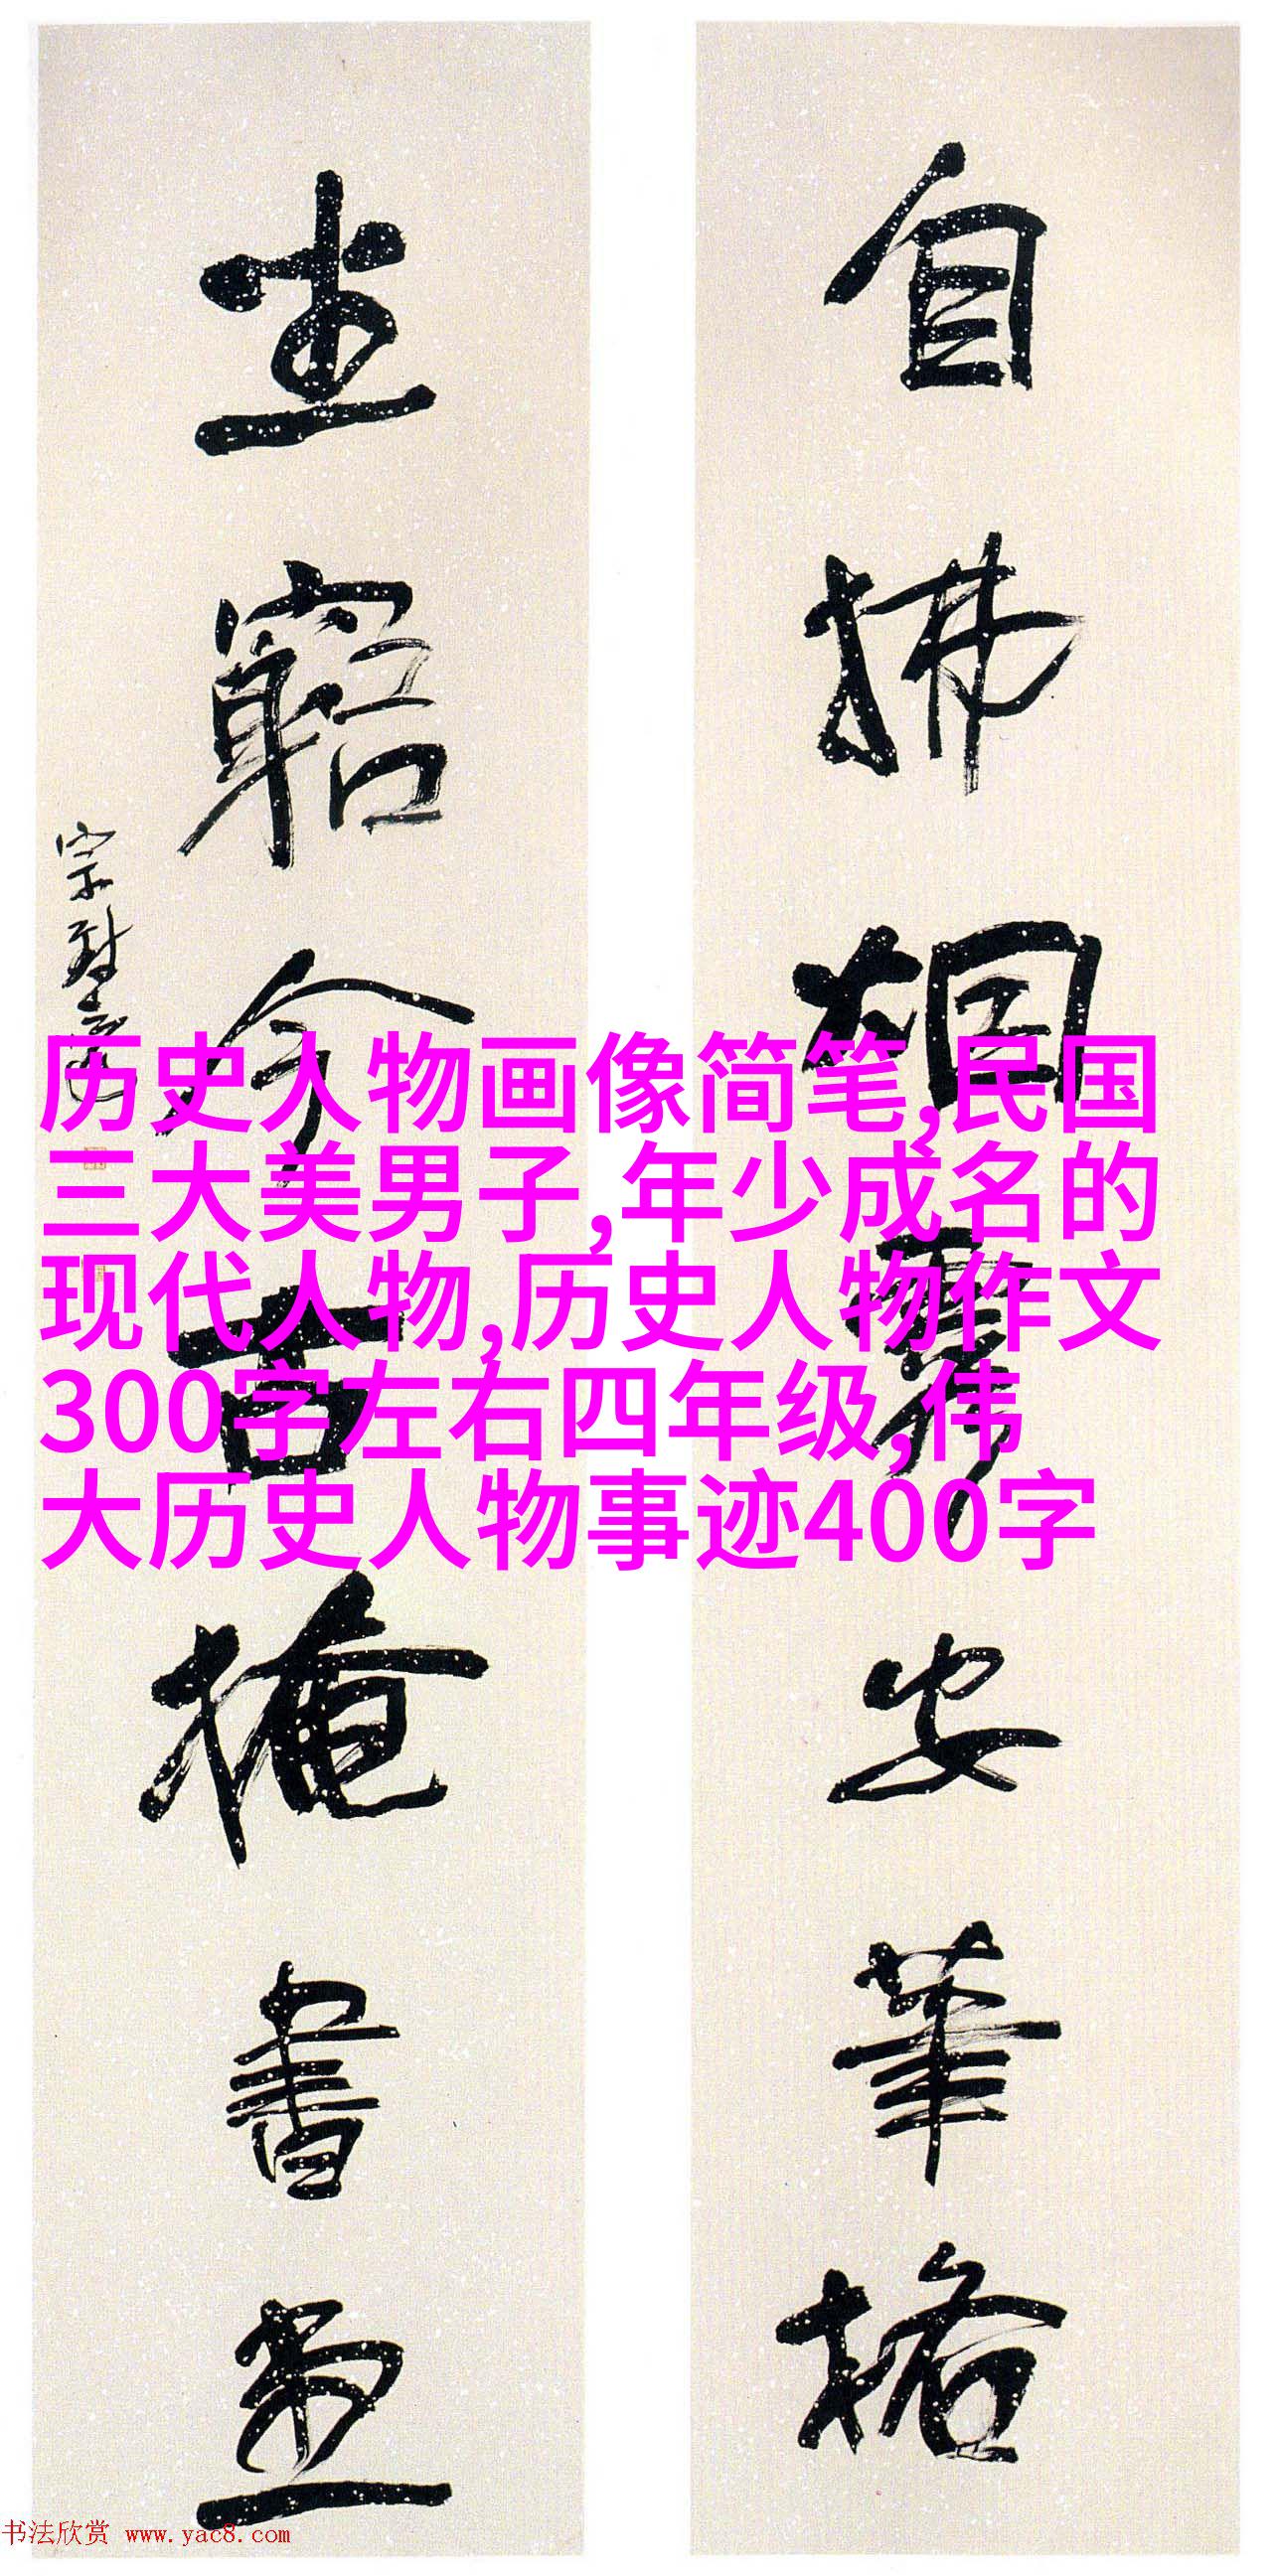 自拂烟霞安筆格
坐窮今古掩書堂
历史人物画像简笔,民国
三大美男子,年少成名的
现代人物,历史人物作文
300字左右四年级,伟
大历史人物事迹400字
书法欣赏 www.yac8.com